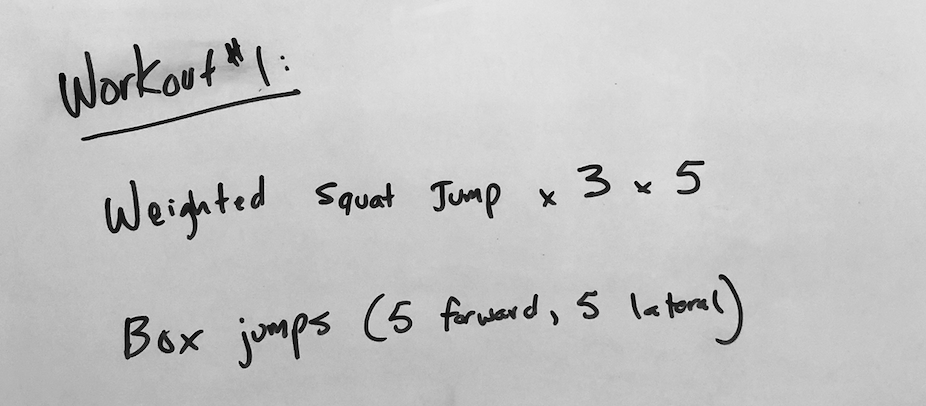 Workout #1:
Weighted Squat Jump x 3 x 5
Box jumps (5 forward, 5 lateral)